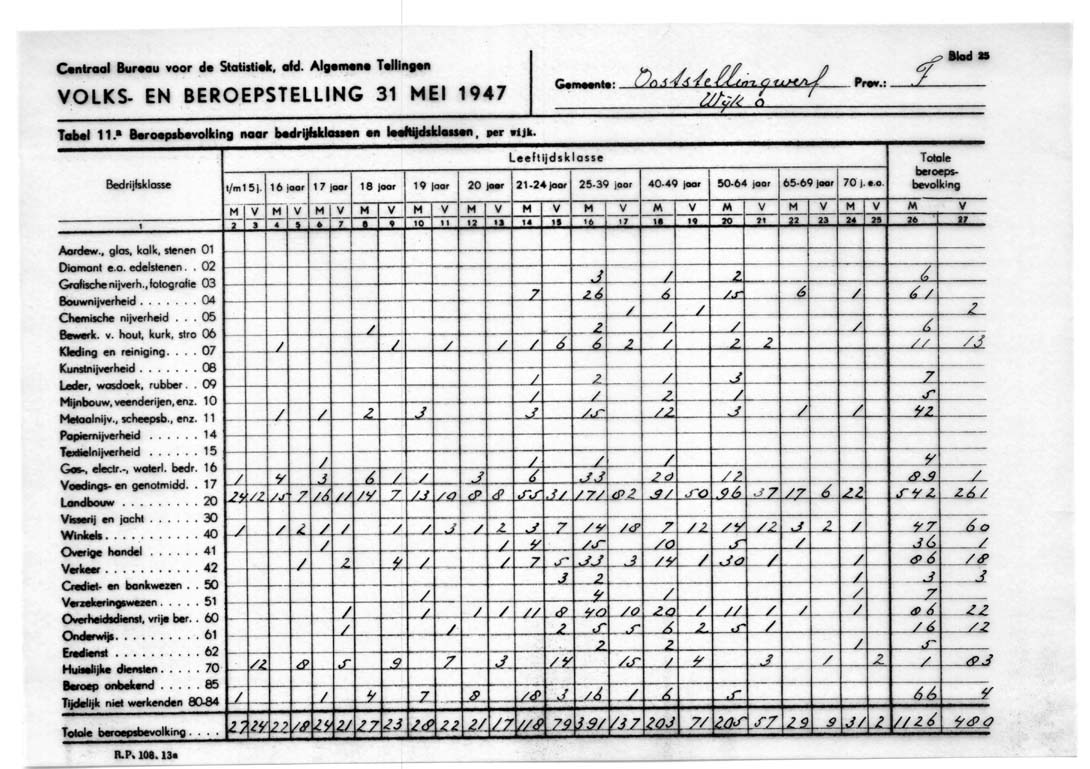 Centraal Bureau voor de Statistiek, afd. Algemene Tellingen
Blad 25
VOLKS- EN BEROEPSTELLING 31 MEI 1947
Gemeente: Ooststellingwerf Prov.: F
Wijk O
Tabel 11.a Beroepsbevolking naar bedrijfsklassen en leeftijdsklassen, per wijk.
Bedrijfsklasse Leeftijdsklasse Totale beroeps-bevolking
t/m 15 j. 16 jaar 17 jaar 18 jaar 19 jaar 20 jaar 21-24 jaar 25-39 jaar 40-49 jaar 50-64 jaar 65-69 jaar 70 j. e.o.
M V M V M V M V M V M V M V M V M V M V M V M V M V
1 2 3 4 5 6 7 8 9 10 11 12 13 14 15 16 17 18 19 20 21 22 23 24 25 26 27
Aardew., glas, kalk, stenen 01
Diamant e.a. edelstenen . . 02
Grafische nijverh., fotografie 03 3 1 2 6
Bouwnijverheid . . . . . . . 04 7 26 6 15 6 1 61
Chemische nijverheid . . . 05 1 1 2
Bewerk. v. hout, kurk, stro 06 1 2 1 1 1 6
Kleding en reiniging . . . . 07 1 1 1 1 1 6 6 2 1 2 2 11 13
Kunstnijverheid . . . . . . . 08
Leder, wasdoek, rubber . . 09 1 2 1 3 7
Mijnbouw, veenderijen, enz. 10 1 1 2 1 5
Metaalnijv., scheepsb., enz. 11 1 1 2 3 3 15 12 3 1 1 42
Papiernijverheid . . . . . . 14
Textielnijverheid . . . . . . 15
Gas-, electr.-, waterl. bedr. 16 1 1 1 1 4
Voedings- en genotmidd. . 17 1 4 3 6 1 1 3 6 33 20 12 89 1
Landbouw . . . . . . . . . 20 24 12 15 7 16 11 14 7 13 10 8 8 55 31 171 82 91 50 96 37 17 6 22 542 261
Visserij en jacht . . . . . . 30
Winkels . . . . . . . . . . . 40 1 1 2 1 1 1 1 3 1 2 3 7 14 18 7 12 14 12 3 2 1 47 60
Overige handel . . . . . . 41 1 1 4 15 10 5 1 36 1
Verkeer . . . . . . . . . . . 42 1 2 4 1 1 7 5 33 3 14 1 30 1 1 86 18
Crediet- en bankwezen . . 50 3 2 1 3 3
Verzekeringswezen . . . . . 51 1 4 1 1 7
Overheidsdienst, vrije ber. . 60 1 1 1 1 11 8 40 10 20 1 11 1 1 1 86 22
Onderwijs . . . . . . . . . . 61 1 1 2 5 5 6 2 5 1 16 12
Eredienst . . . . . . . . . . 62 2 2 1 5
Huiselijke diensten . . . . . 70 12 8 5 9 7 3 14 15 1 4 3 1 2 1 83
Beroep onbekend . . . . . 85
Tijdelijk niet werkenden 80-84 1 1 4 7 8 18 3 16 1 6 5 66 4
Totale beroepsbevolking . . . . 27 24 22 18 24 21 27 23 28 22 21 17 118 79 391 137 203 71 205 57 29 9 31 2 1126 480
R.P. 108. 13a